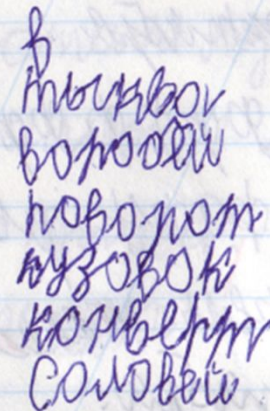 в
тыква
воробей
поворот
кузовок
конверт
Соловей